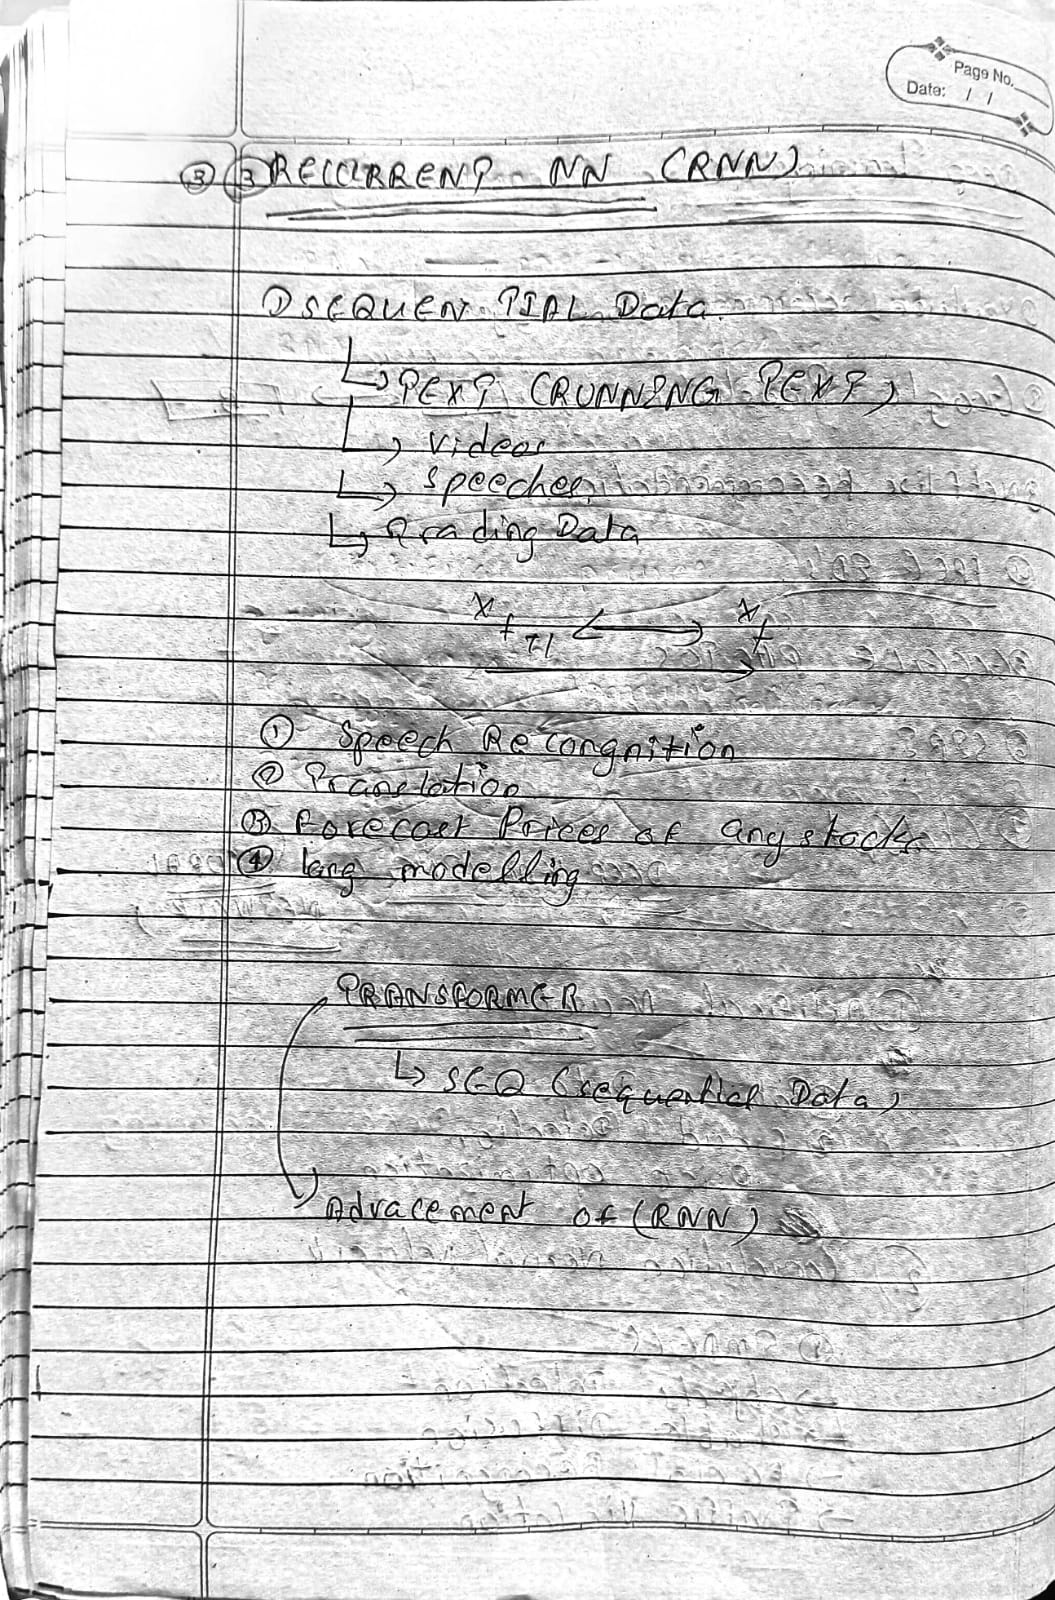 Page No.
Date: / /
③ ③ RECURRENT NN (RNN)
① SEQUENTIAL Data
↳ TEXT (RUNNING TEXT)
↳ Videos
↳ Speeches
↳ Trading Data
X t-1 ⟷ X t
① Speech Recongnition
② Translation
③ Forecast Prices of any stocks
④ lang modelling
TRANSFORMER
↳ SEQ (sequential Data)
Advacement of (RNN)